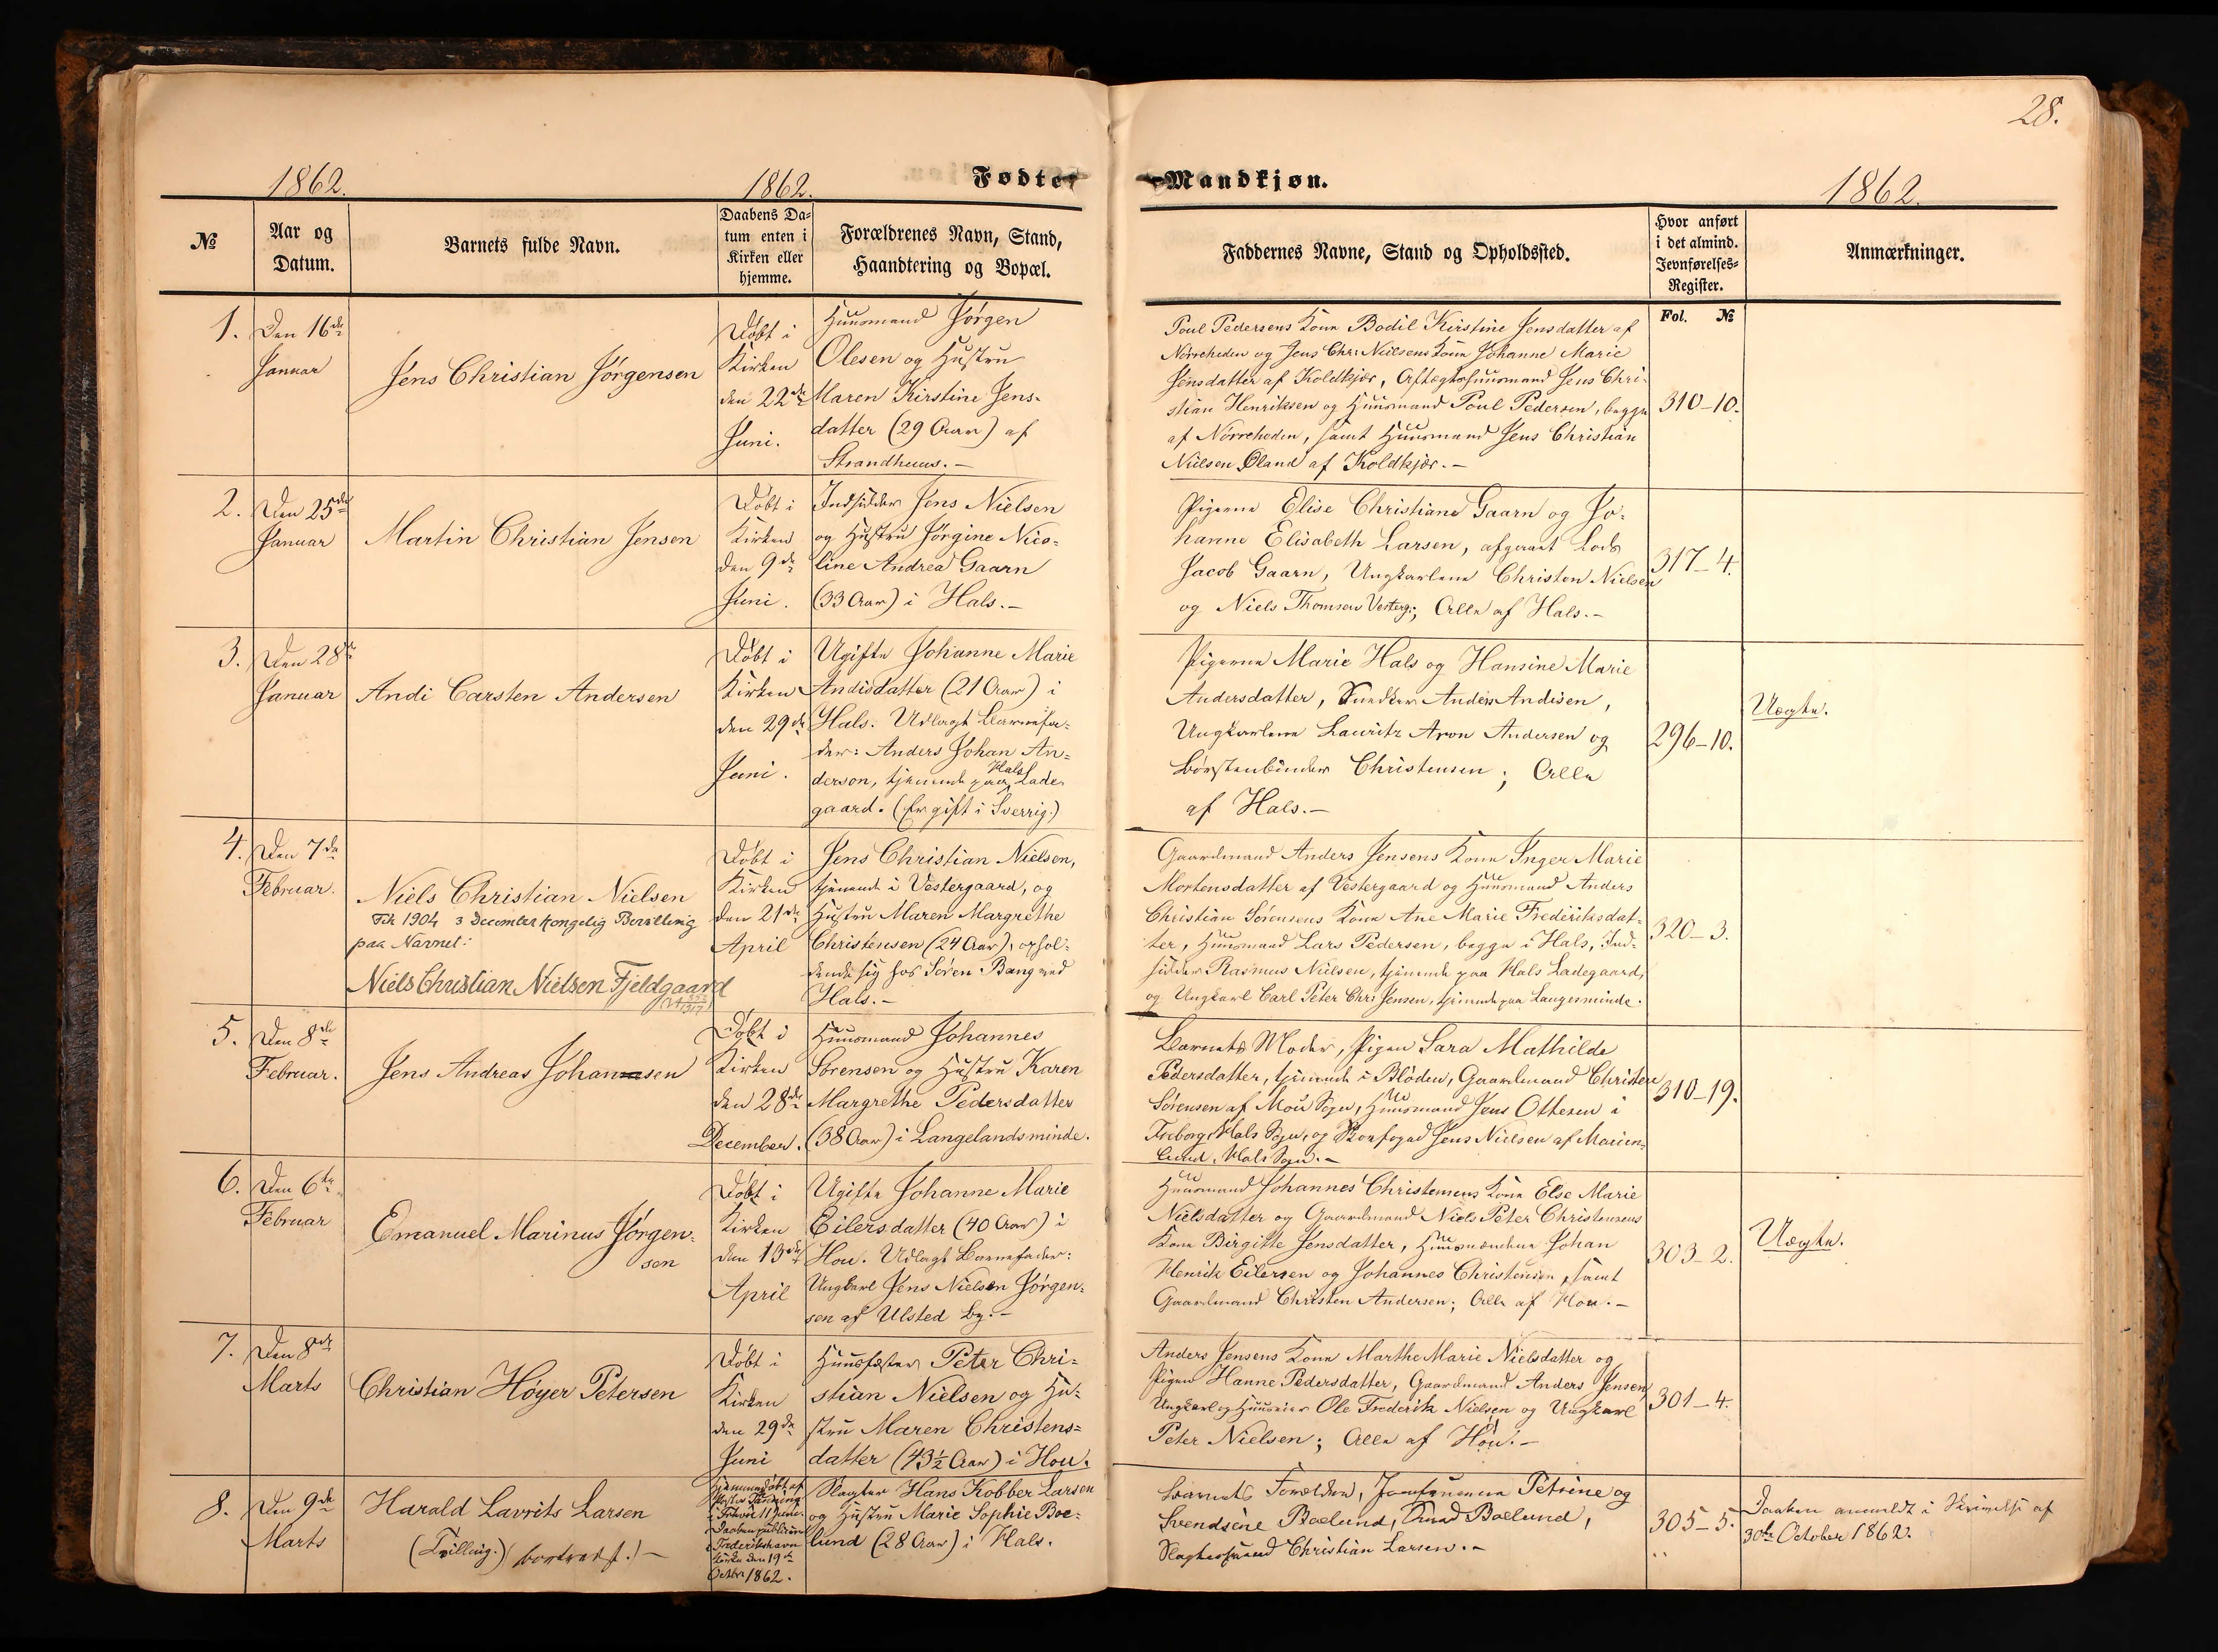 28.
1862.
1862.
Fødte
Mandkjøn.
1862.
№
Aar og
Datum.
Barnets fulde Navn.
Daabens Da=
tum enten i
Kirken eller
hjemme.
Forældrenes Navn, Stand,
Haandtering og Bopæl.
Faddernes Navne, Stand og Opholdssted.
Hvor anført
i det almind.
Jevnførelses=
Register.
Anmærkninger.
Fol. №
1.
Den 16de
Januar
Jens Christian Jørgensen
Døbt i
Kirken
den 22de
Juni.
Huusmand Jørgen
Olesen og Hustru
Maren Kirstine Jens-
datter (29 Aar) af
Strandhuus.—
Poul Pedersens Kone Bodil Kirstine Jensdatter af
Nørreheden og Jens Chr: Nielsens Kone Johanne Marie
Jensdatter af Koldkjær, Aftægtshuusmand Jens Chri-
stian Henriksen og Huusmand Poul Pedersen, begge
af Nørreheden, samt Huusmand Jens Christian
Nielsen Øland af Koldkjær.—
310—10.
2.
Den 25de
Januar
Martin Christian Jensen
Døbt i
Kirken
den 9de
Juni.
Indsidder Jens Nielsen
og Hustru Jørgine Nico=
line Andrea Gaarn
(33 Aar) i Hals.—
Pigerne Elise Christiane Gaarn og Jo=
hanne Elisabeth Larsen, afgaaet Lods
Jacob Gaarn, Ungkarlene Christen Nielsen
og Niels Thomsen Vesterg:; Alle af Hals.—
317—4.
3.
Den 28de
Januar
Andi Carsten Andersen
Døbt i
Kirken
den 29de
Juni.
Ugifte Johanne Marie
Andisdatter (21 Aar) i
Hals. Udlagt Barnefa=
der: Anders Johan An=
derson, tjenende paa Hals Lade-
gaard. (Er gift i Sverrig.)
Pigerne Marie Hals og Hansine Marie
Andersdatter, Anders Andisen,
Ungkarlene Lauritz Aron Andersen og
Børstenbinder Christensen; Alle
af Hals.—
296—10.
Uægte.
4.
Den 7de
Februar.
Niels Christian Nielsen
Fik 1904 3 December kongelig Bevilling
paa Navnet:
Niels Christian Nielsen Fjeldgaard
Døbt i
Kirken
den 21de
April
Jens Christian Nielsen,
tjenende i Vestergaard, og
Hustru Maren Margrethe
Christensen (24 Aar), ophol=
dende sig hos Søren Bang ved
Hals.—
Gaardmand Anders Jensens Kone Inger Marie
Mortensdatter af Vestergaard og Huusmand Anders
Christian Sørensens Kone Ane Marie Frederiksdat=
ter, Huusmand Lars Pedersen, begge i Hals, Ind=
sidder Rasmus Nielsen, tjenende paa Hals Ladegaard,
og Ungkarl Carl Peter Chr: Jensen, tjenende paa Langesminde.
320—3.
5.
Den 8de
Februar.
Jens Andreas Johansen
Døbt i
Kirken
den 28de
December.
Huusmand Johannes
Sørensen og Hustru Karen
Margrethe Pedersdatter
(38 Aar) i Langelandsminde.
Barnets Moder, Pigen Sara Mathilde
Pedersdatter, tjenende i Bløden, Gaardmand Christen
Sørensen af Mou Sogn, Huusmand Jens Ottesen i
Treborg, Hals Sogn, og Skovfoged Jens Nielsen af Marien=
lund, Hals Sogn.—
310—19.
6.
Den 6te
Februar
Emanuel Marinus Jørgen=
sen
Døbt i
Kirken
den 13de
April
Ugifte Johanne Marie
Eilersdatter (40 Aar) i
Hou. Udlagt Barnefader:
Ungkarl Jens Nielsen Jørgen=
sen af Ulsted By.—
Huusmand Johannes Christensens Kone Else Marie
Nielsdatter og Gaardmand Niels Peter Christensens
Kone Birgitte Jensdatter, Huusmændene Johan
Henrik Eilersen og Johannes Christensen, samt
Gaardmand Christen Andersen; Alle af Hou.—
303—2.
Uægte.
7.
Den 8de
Marts
Christian Høyer Petersen
Døbt i
Kirken
den 29de
Juni
Huusfæster Peter Chri=
stian Nielsen og Hu=
stru Maren Christens=
datter (43½ Aar) i Hou.
Anders Jensens Kone Marthe Marie Nielsdatter og
Pigen Hanne Pedersdatter, Gaardmand Anders Jensen
Ungkarl og Huuseier Ole Frederik Nielsen og Ungkarl
Peter Nielsen; Alle af Hou.—
301—4.
8.
Den 9de
Marts
Harald Lavrits Larsen
(Tvilling.)
Hjemmedøbt af
Pastor
11 Juni.
Daaben publiceret
i Frederikshavn
Kirke den 19de
Octbr 1862.
Slagter Hans Kobber Larsen
og Hustru Marie Sophie Boe=
lund (28 Aar) i Hals.
Barnets Forældre, Jomfruerne Petrine og
Svendsine Boelund, Knud Boelund,
Slagtersvend Christian Larsen.—
305—5.
Daaben anmeldt i Skrivelse af
30te October 1862.